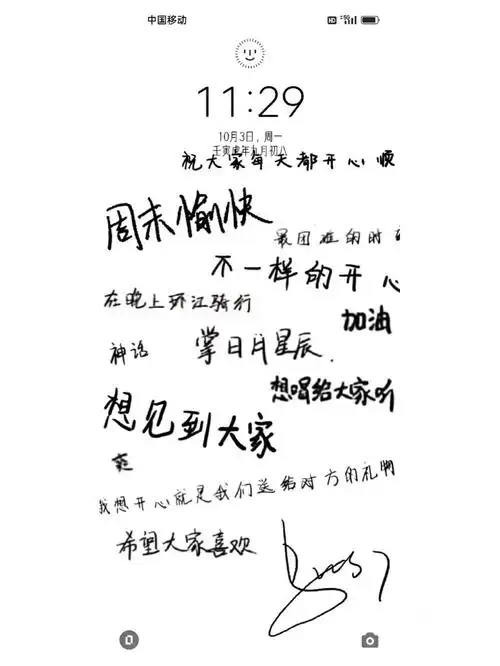 中国移动
11:29
10月3日，周一
壬寅虎年九月初八
祝大家每天都开心顺
周末愉快
最困难的时
不一样的开心
在晚上环江骑行
加油
神话 掌日月星辰.
想唱给大家听
想见到大家
爽
我想开心就是我们送给对方的礼物
希望大家喜欢